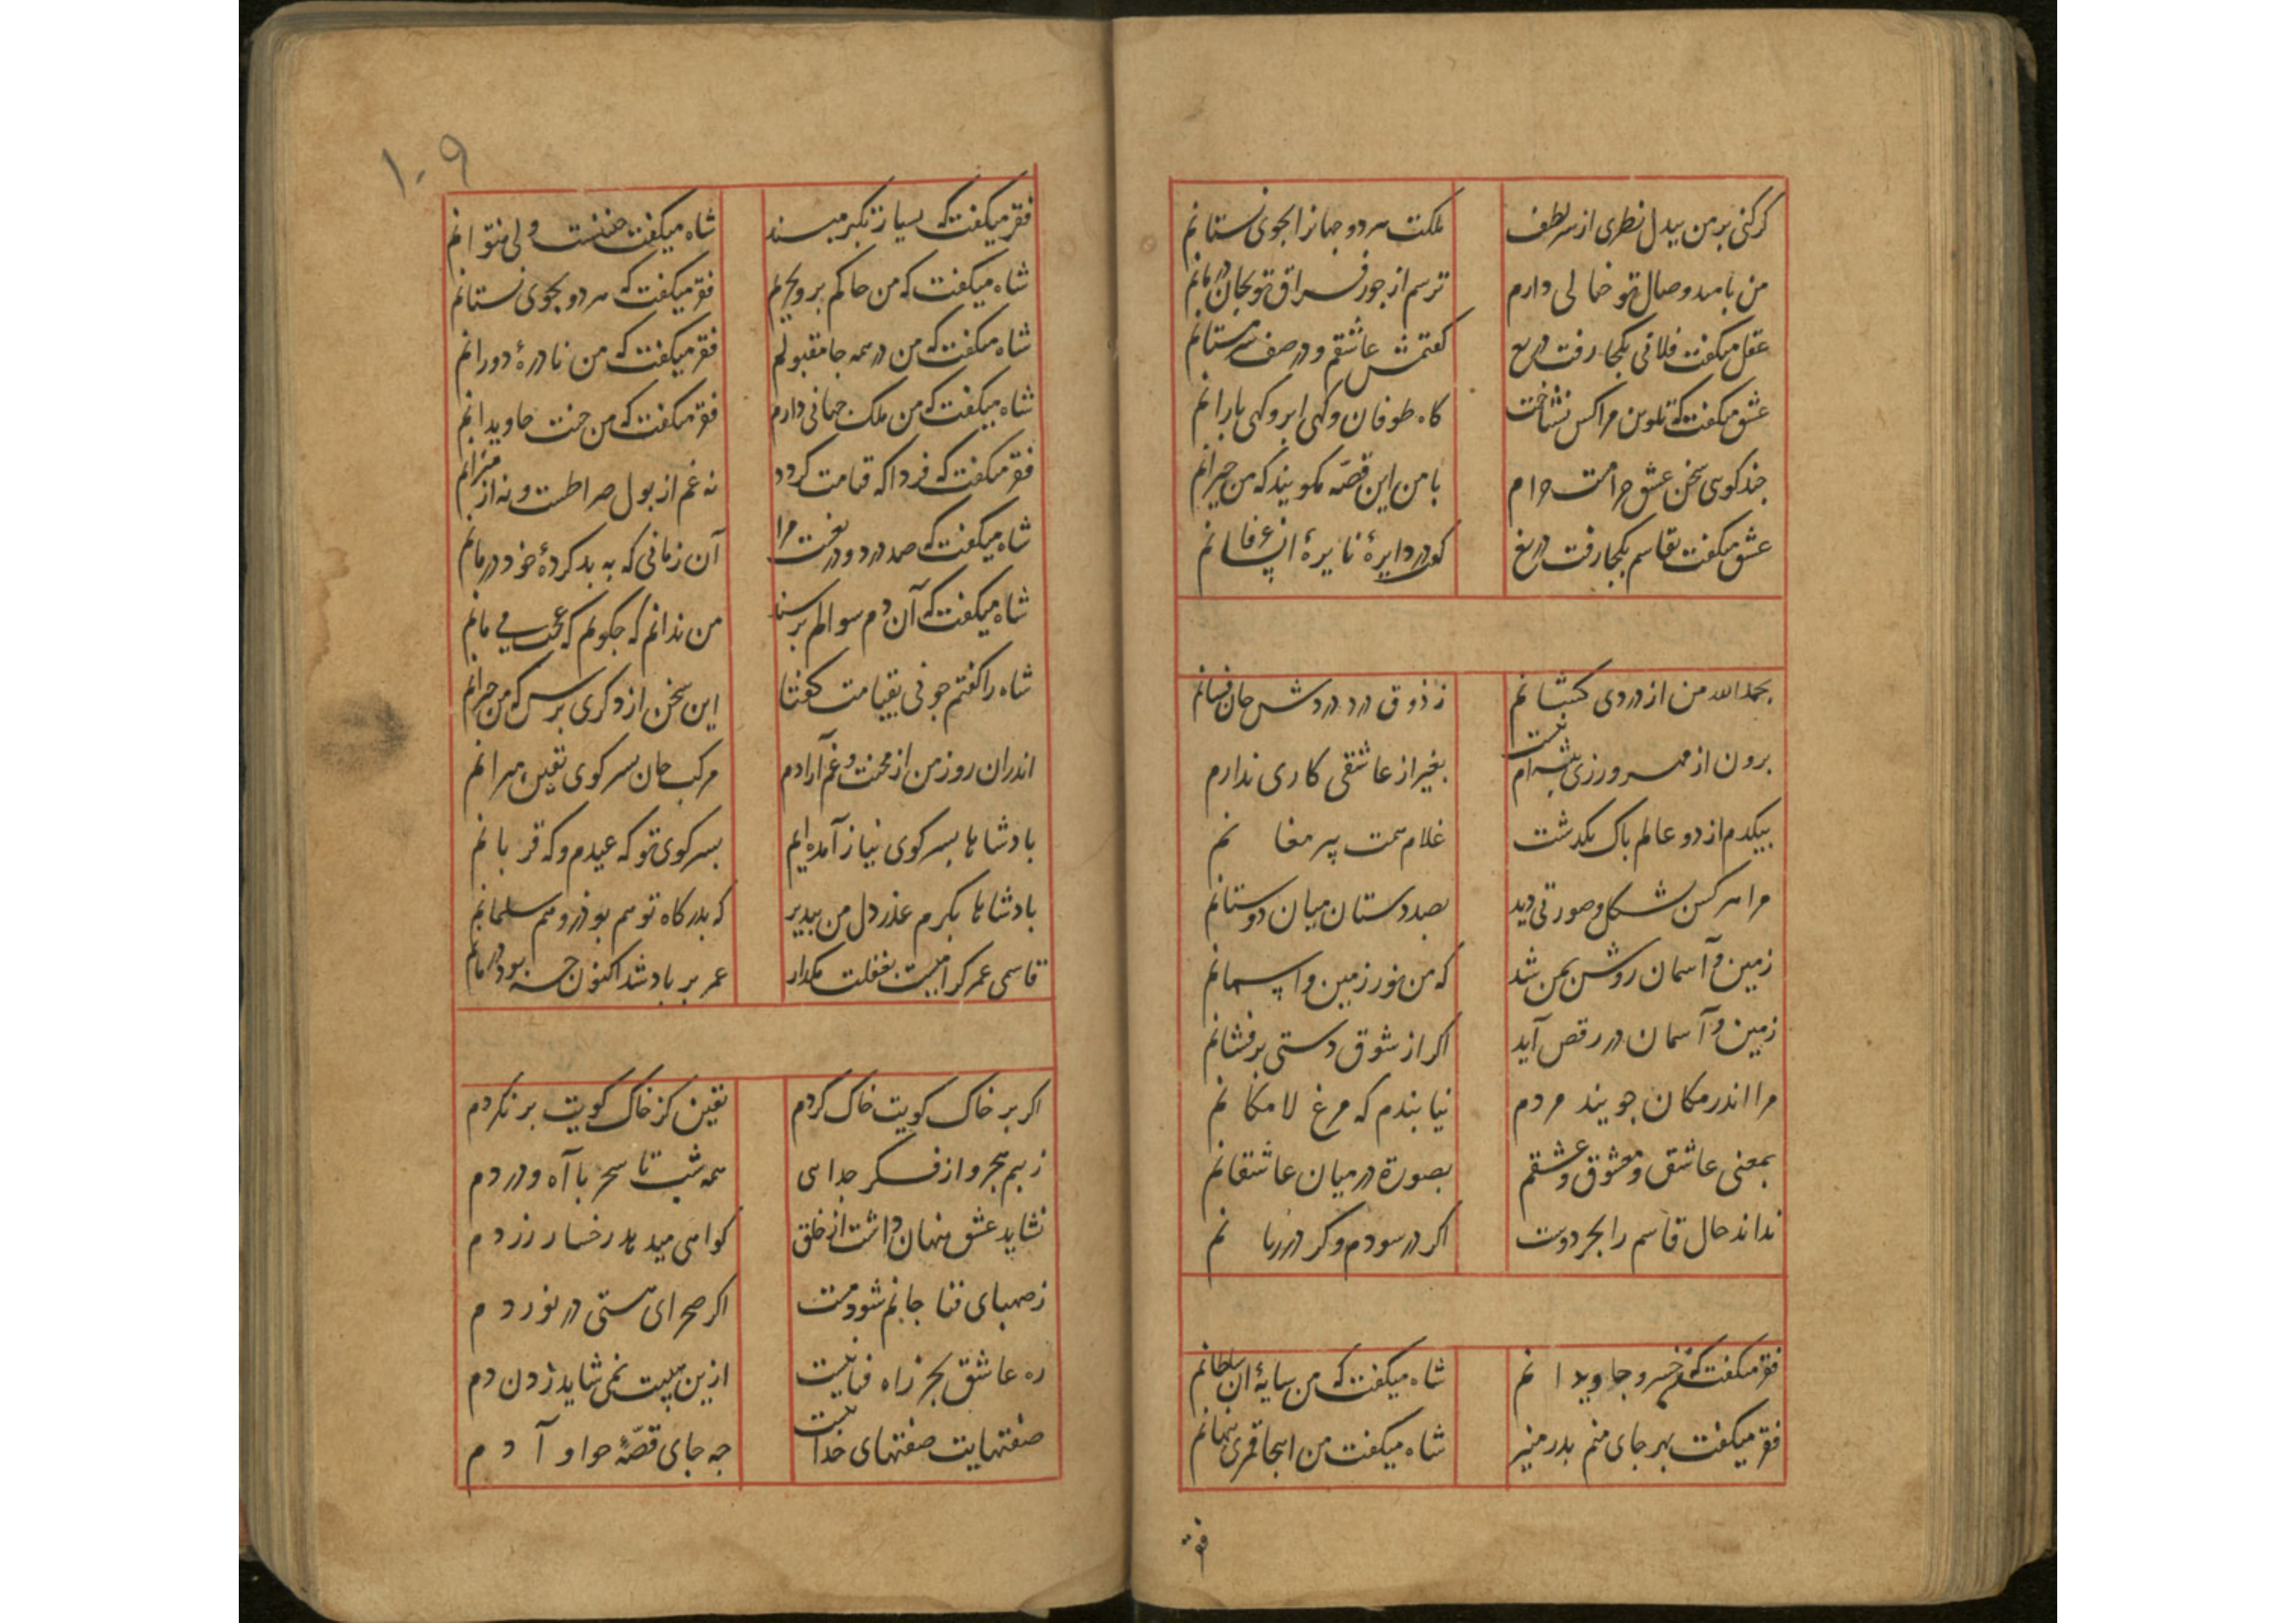 گر کنی بر من بیدل نظری از سر لطف
ملکت هر دو جهانرا بجوی نستانم
من بامید وصال تو خیالی دارم
ترسم از جور فراق تو بجان در مانم
عقل میگفت فلانی بکجا رفت دریغ
گفتمش عاشقم و در صف سرمستانم
عشق میگفت که تلوین مرا کس نشناخت
گاه طوفان و گهی ابر و گهی بارانم
چند گویی سخن عشق حرامست حرام
با من این قصه مگویید که من حیرانم
عشق میگفت بقاسم بکجا رفت دریغ
کو در دایرهٔ نایرهٔ
بحمدالله من از دردی کشانم
ز ذوق درد دردش جان فشانم
برون از مهرورزی نیست پیشه‌ام
بغیر از عاشقی کاری ندارم
بیکدم از دو عالم پاک بگذشت
غلام همت پیر مغانم
مرا هر کس بشکل و صورتی دید
بصد دستان میان دوستانم
زمین و آسمان روشن بمن شد
که من نور زمین و آسمانم
زمین و آسمان در رقص آید
اگر از شوق دستی برفشانم
مرا اندر مکان جویند مردم
نیابندم که مرغ لامکانم
بمعنی عاشق و معشوق و عشقم
بصورة در میان عاشقانم
نداند حال قاسم را بجز دوست
اگر در سودم و گر در زیانم
فقر میگفت که من خسرو جاویدانم
شاه میگفت که من سایهٔ آن سلطانم
فقر میگفت بهر جای منم بدر منیر
شاه میگفت من اینجا قمری پنهانم
فقر
۱۰۹
فقر میگفت که بسیار تکبر مپسند
شاه میگفت چنینست ولی نتوانم
شاه میگفت که من حاکم بر و بحرم
فقر میگفت که هر دو بجوی نستانم
شاه میگفت که من در همه جا مقبولم
فقر میگفت که من نادرهٔ دورانم
شاه میگفت که من ملک جهانی دارم
فقر میگفت که من جنت جاویدانم
فقر میگفت که فردا که قیامت گردد
نه غم از هول صراطست و نه از میزانم
شاه میگفت که صد درد و دریغست مرا
آن زمانی که به بد کردهٔ خود درمانم
شاه میگفت که آن دم سوالم پرسند
من ندانم که چگویم که عجب می مانم
شاه را گفتم چونی بقیامت گفتا
این سخن از دگری پرس که من حیرانم
اندران روز من از محنت و غم آزادم
مرکب جان بسر کوی یقین میرانم
پادشاها بسر کوی نیاز آمده‌ایم
بسر کوی تو که عیدم و که قربانم
پادشاها بکرم عذر دل من بپذیر
که بدرگاه تو هم بوذر و هم سلمانم
قاسمی عمر گرامیست بغفلت مگذار
عمر بر باد شد اکنون چه بود درمانم
اگر بر خاک کویت خاک گردم
یقین کز خاک کویت بر نگردم
ز بیم هجر و از فکر جدایی
همه شب تا سحر با آه و دردم
نشاید عشق پنهان داشت از خلق
گواهی میدهد رخسار زردم
ز صهبای فنا جانم شود مست
اگر صحرای هستی در نوردم
ره عاشق بجز راه فنا نیست
ازین هیبت نمی شاید زدن دم
صفتهایت صفتهای خداییست
چه جای قصّهٔ حوا و آدم